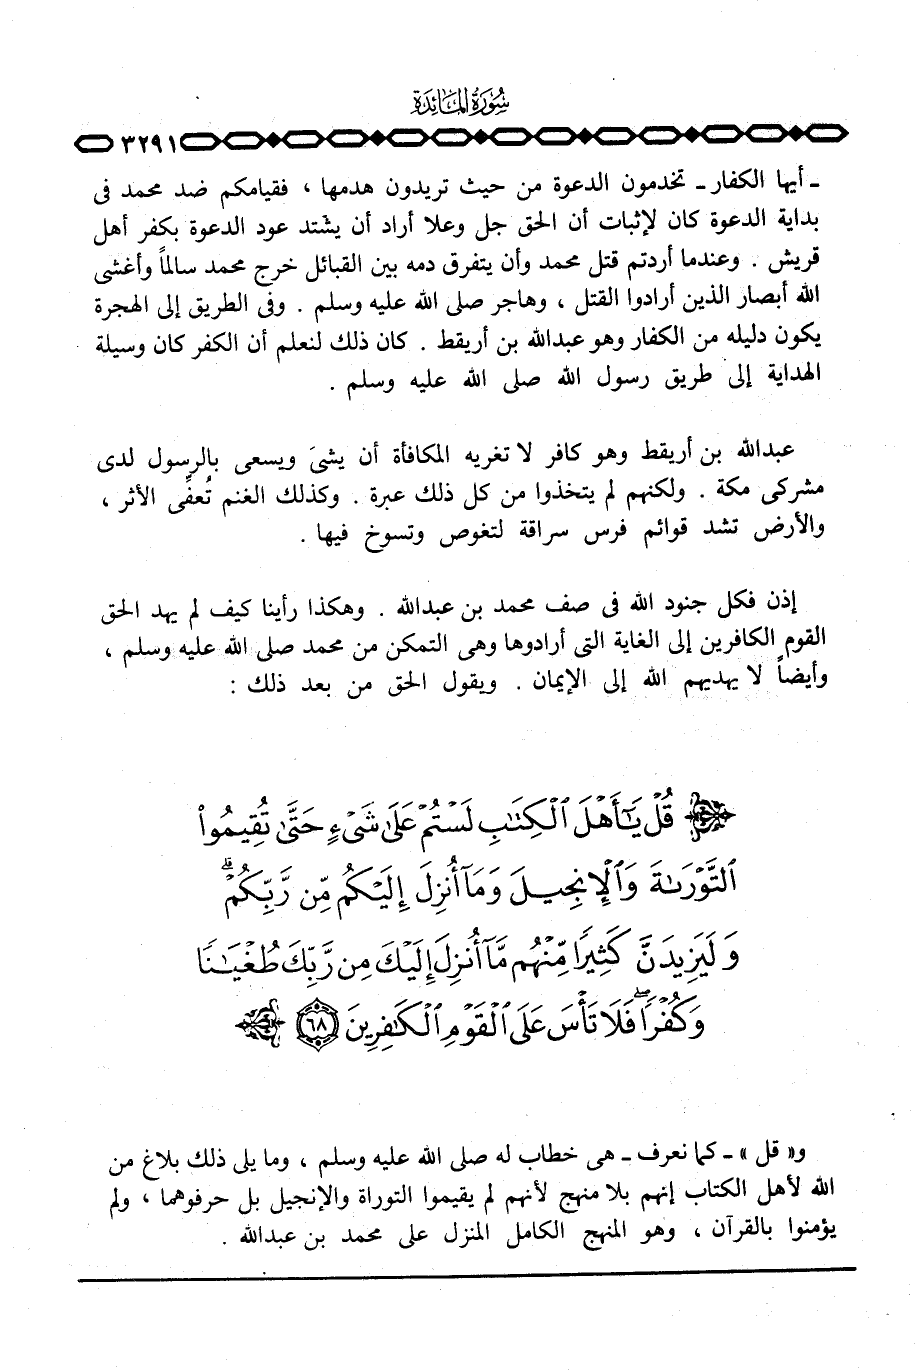 سورة المائدة
٣٢٩١
ـ أيها الكفار ـ تخدمون الدعوة من حيث تريدون هدمها ، فقيامكم ضد محمد فى
بداية الدعوة كان لإثبات أن الحق جل وعلا أراد أن يشتد عود الدعوة بكفر أهل
قريش . وعندما أردتم قتل محمد وأن يتفرق دمه بين القبائل خرج محمد سالماً وأغشى
الله أبصار الذين أرادوا القتل ، وهاجر صلى الله عليه وسلم . وفى الطريق إلى الهجرة
يكون دليله من الكفار وهو عبدالله بن أريقط . كان ذلك لنعلم أن الكفر كان وسيلة
الهداية إلى طريق رسول الله صلى الله عليه وسلم .
عبدالله بن أريقط وهو كافر لا تغريه المكافأة أن يشىَ ويسعى بالرسول لدى
مشركى مكة . ولكنهم لم يتخذوا من كل ذلك عبرة . وكذلك الغنم تُعفِّى الأثر ،
والأرض تشد قوائم فرس سراقة لتغوص وتسوخ فيها .
إذن فكل جنود الله فى صف محمد بن عبدالله . وهكذا رأينا كيف لم يهد الحق
القوم الكافرين إلى الغاية التى أرادوها وهى التمكن من محمد صلى الله عليه وسلم ،
وأيضاً لا يهديهم الله إلى الإيمان . ويقول الحق من بعد ذلك :
قُلْ يَٰٓأَهْلَ ٱلْكِتَٰبِ لَسْتُمْ عَلَىٰ شَىْءٍ حَتَّىٰ تُقِيمُوا۟
ٱلتَّوْرَىٰةَ وَٱلْإِنجِيلَ وَمَآ أُنزِلَ إِلَيْكُم مِّن رَّبِّكُمْ ۗ
وَلَيَزِيدَنَّ كَثِيرًا مِّنْهُم مَّآ أُنزِلَ إِلَيْكَ مِن رَّبِّكَ طُغْيَٰنًا
وَكُفْرًا ۖ فَلَا تَأْسَ عَلَى ٱلْقَوْمِ ٱلْكَٰفِرِينَ ٦٨
و« قل » ـ كما نعرف ـ هى خطاب له صلى الله عليه وسلم ، وما يلى ذلك بلاغ من
الله لأهل الكتاب إنهم بلا منهج لأنهم لم يقيموا التوراة والإنجيل بل حرفوهما ، ولم
يؤمنوا بالقرآن ، وهو المنهج الكامل المنزل على محمد بن عبدالله .